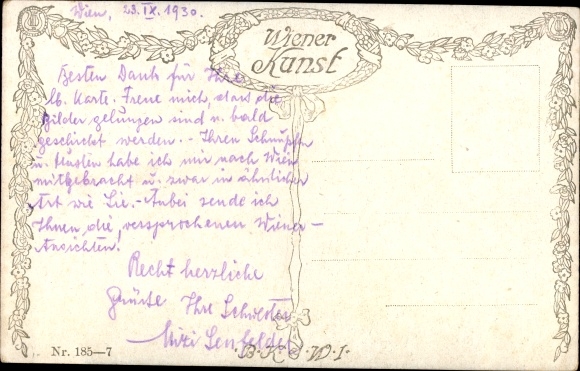 Wien, 23.IX.1930.
Wiener
Kunst
Besten Dank für Ihre
lb. Karte. Freue mich, dass die
Bilder gelungen sind u. bald
geschickt werden. - Ihren Schnupfen
u. Husten habe ich mir nach Wien
mitgebracht u. zwar in ähnlicher
Art wie Sie. - Anbei sende ich
Ihnen die versprochenen Wiener-
Ansichten!
Recht herzliche
Grüsse Ihre Schwester
Mizi
Nr. 185-7
B.K.W.I.